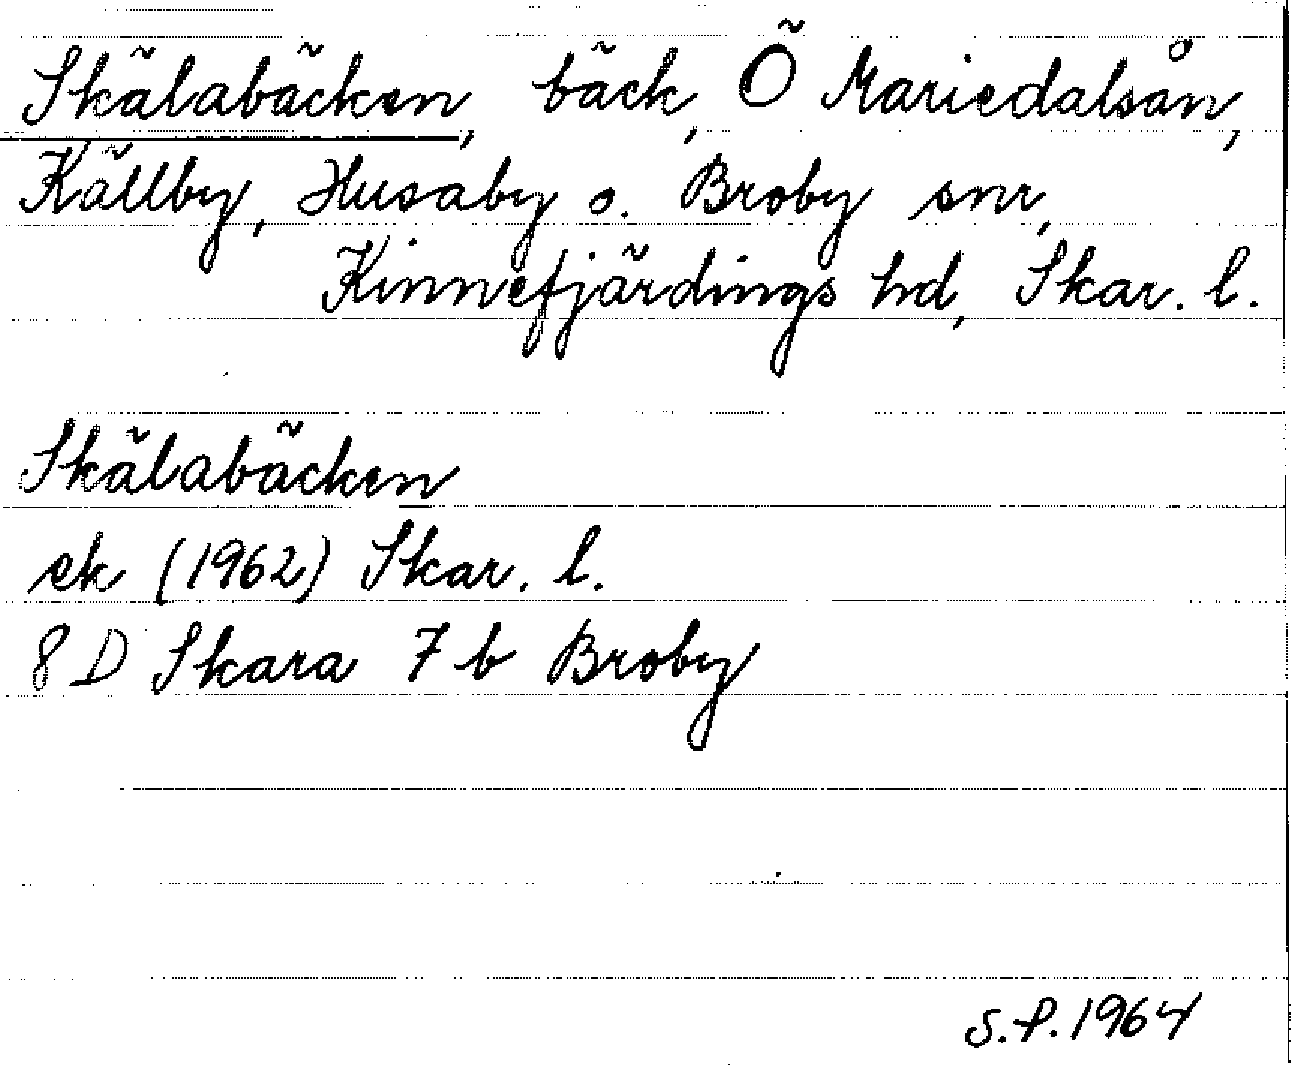 Skälabäcken, bäck, Ö Mariedalsån,
Källby, Husaby o. Broby snr,
Kinnefjärdings hd, Skar. l.
Skälabäcken
ek (1962) Skar. l.
8 D Skara 7 b Broby
S.P. 1964